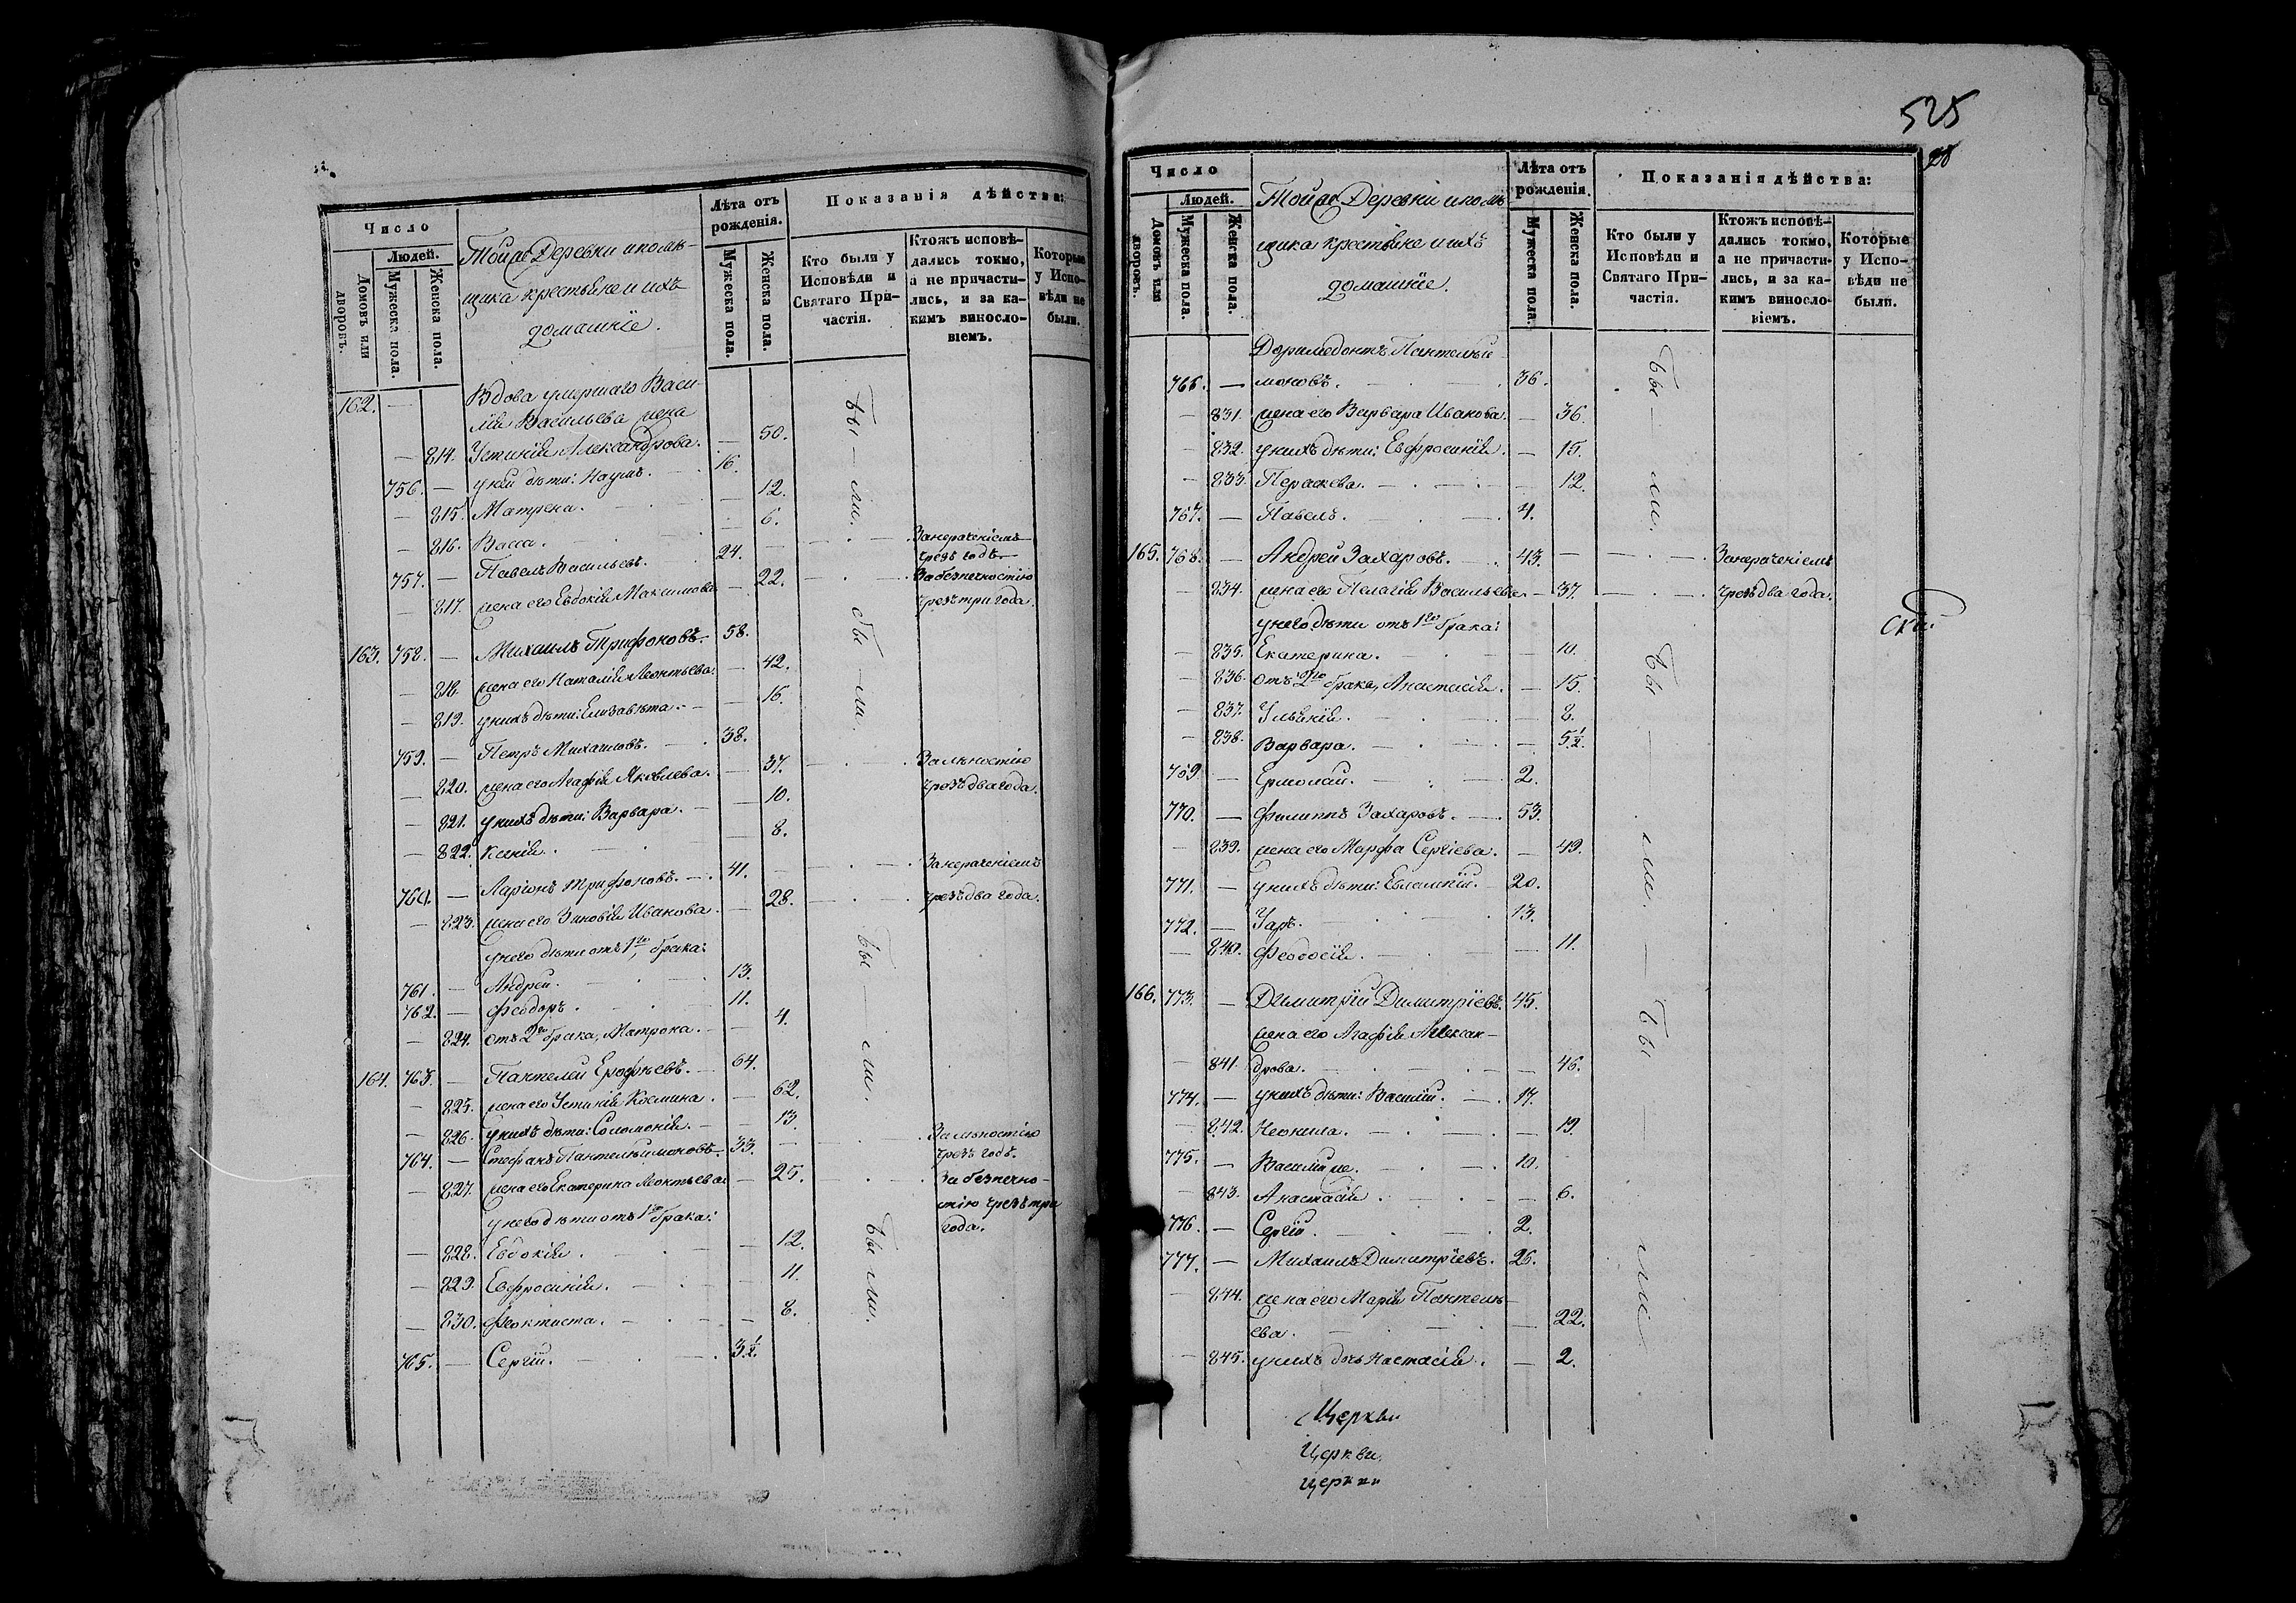 Число
Людей.
Домовъ или дворовъ.
Мужеска пола.
Женска пола.
Тойже Деревни и помѣ-
щика крестьяне и ихъ
домашніе.
Лѣта отъ рожденія.
Мужеска пола.
Женска пола.
Показанія дѣйства:
Кто были у Исповѣди и Святаго При-частія.
Ктожъ исповѣ-дались токмо, а не причасти-лись, и за ка-кимъ винословіемъ.
Которые у Испо-вѣди не были.
162. — Вдова умершаго Васи-
лія Васильева жена
— 814. Устинія Александрова. — 50.
756. — у ней дѣти: Наумъ. 16.
— 815. Матрена. — 12.
— 816. Васса. — 6.
757. — Павелъ Васильевъ. 24. За нераченіемъ
чрезъ годъ.
— 817. жена его Евдокія Максимова — 22. За безпечностію
чрезъ три года.
163. 758. — Михаилъ Трифоновъ. 58.
— 818. жена его Наталія Леонтьева. — 42.
— 819. у нихъ дѣти: Елизавета. — 16.
759. — Петръ Михаиловъ. 38.
— 820. жена его Агафія Яковлева. — 37. За лѣностію
чрезъ два года.
— 821. у нихъ дѣти: Варвара. — 10.
— 822. Ксенія. — 8.
760. — Ларіонъ Трифоновъ. 41. За нераченіемъ
— 823. жена его Зиновія Иванова. — 28. чрезъ два года.
у него дѣти отъ 1го брака:
761. — Андрей. 13.
762. — Феодоръ. 11.
— 824. отъ 2го брака, Матрона. — 4.
164. 763. — Пантелей Ерофѣевъ. 64.
— 825. жена его Устинія Космина. — 62.
— 826. у нихъ дѣти: Соломонія. — 13.
764. — Стефанъ Пантелѣимоновъ. 33. За лѣностію
чрезъ годъ.
— 827. жена его Екатерина Леонтьева. — 25. За безпечно-
стію чрезъ три
года.
у него дѣти отъ 1го брака:
— 828. Евдокія. — 12.
— 829. Евфросинія. — 11.
— 830. Феоктиста. — 8.
765. — Сергій. 3½.
Бы — ли.
бы — ли.
Бы — ли.
Бы ли.
525
Число
Людей.
Домовъ или дворовъ.
Мужеска пола.
Женска пола.
Тойже Деревни и помѣ-
щика крестьяне и ихъ
домашніе.
Лѣта отъ рожденія.
Мужеска пола.
Женска пола.
Показанія дѣйства:
Кто были у Исповѣди и Святаго При-частія.
Ктожъ исповѣ-дались токмо, а не причасти-лись, и за ка-кимъ винословіемъ.
Которые у Испо-вѣди не были.
Доримедонтъ Пантелѣи-
766. — моновъ. 36.
— 831. жена его Варвара Иванова. — 36.
— 832. у нихъ дѣти: Евфросинія. — 15.
— 833. Параскева. — 12.
767. — Павелъ. 4.
165. 768. — Андрей Захаровъ. 43. За нераченіемъ
— 834. жена его Пелагія Васильева — 37. чрезъ два года.
у него дѣти отъ 1го брака:
— 835. Екатерина. — 10.
— 836. отъ 2го брака, Анастасія. — 15.
— 837. Ульянія. — 8.
— 838. Варвара. — 5½.
769. — Ермолай. 2.
770. — Филиппъ Захаровъ. 53.
— 839. жена его Марфа Сергіева. — 49.
771. — у нихъ дѣти: Евлампій. 20.
772. — Уаръ. 13.
— 840. Феодосія. — 11.
166. 773. — Димитрій Димитріевъ. 45.
жена его Агафія Алексан-
— 841. дрова. — 46.
774. — у нихъ дѣти: Василій. 17.
— 842. Неонила. — 19.
775. — Василій же. 10.
— 843. Анастасія. — 6.
776. — Сергій. 2.
777. — Михаилъ Димитріевъ. 26.
— 844. жена его Марія Пантелѣ-
ева. — 22.
— 845. у нихъ дочь Настасія. — 2.
Бы ли.
Бы — ли. —
Бы ли
Церкви
Церкви
Церкви